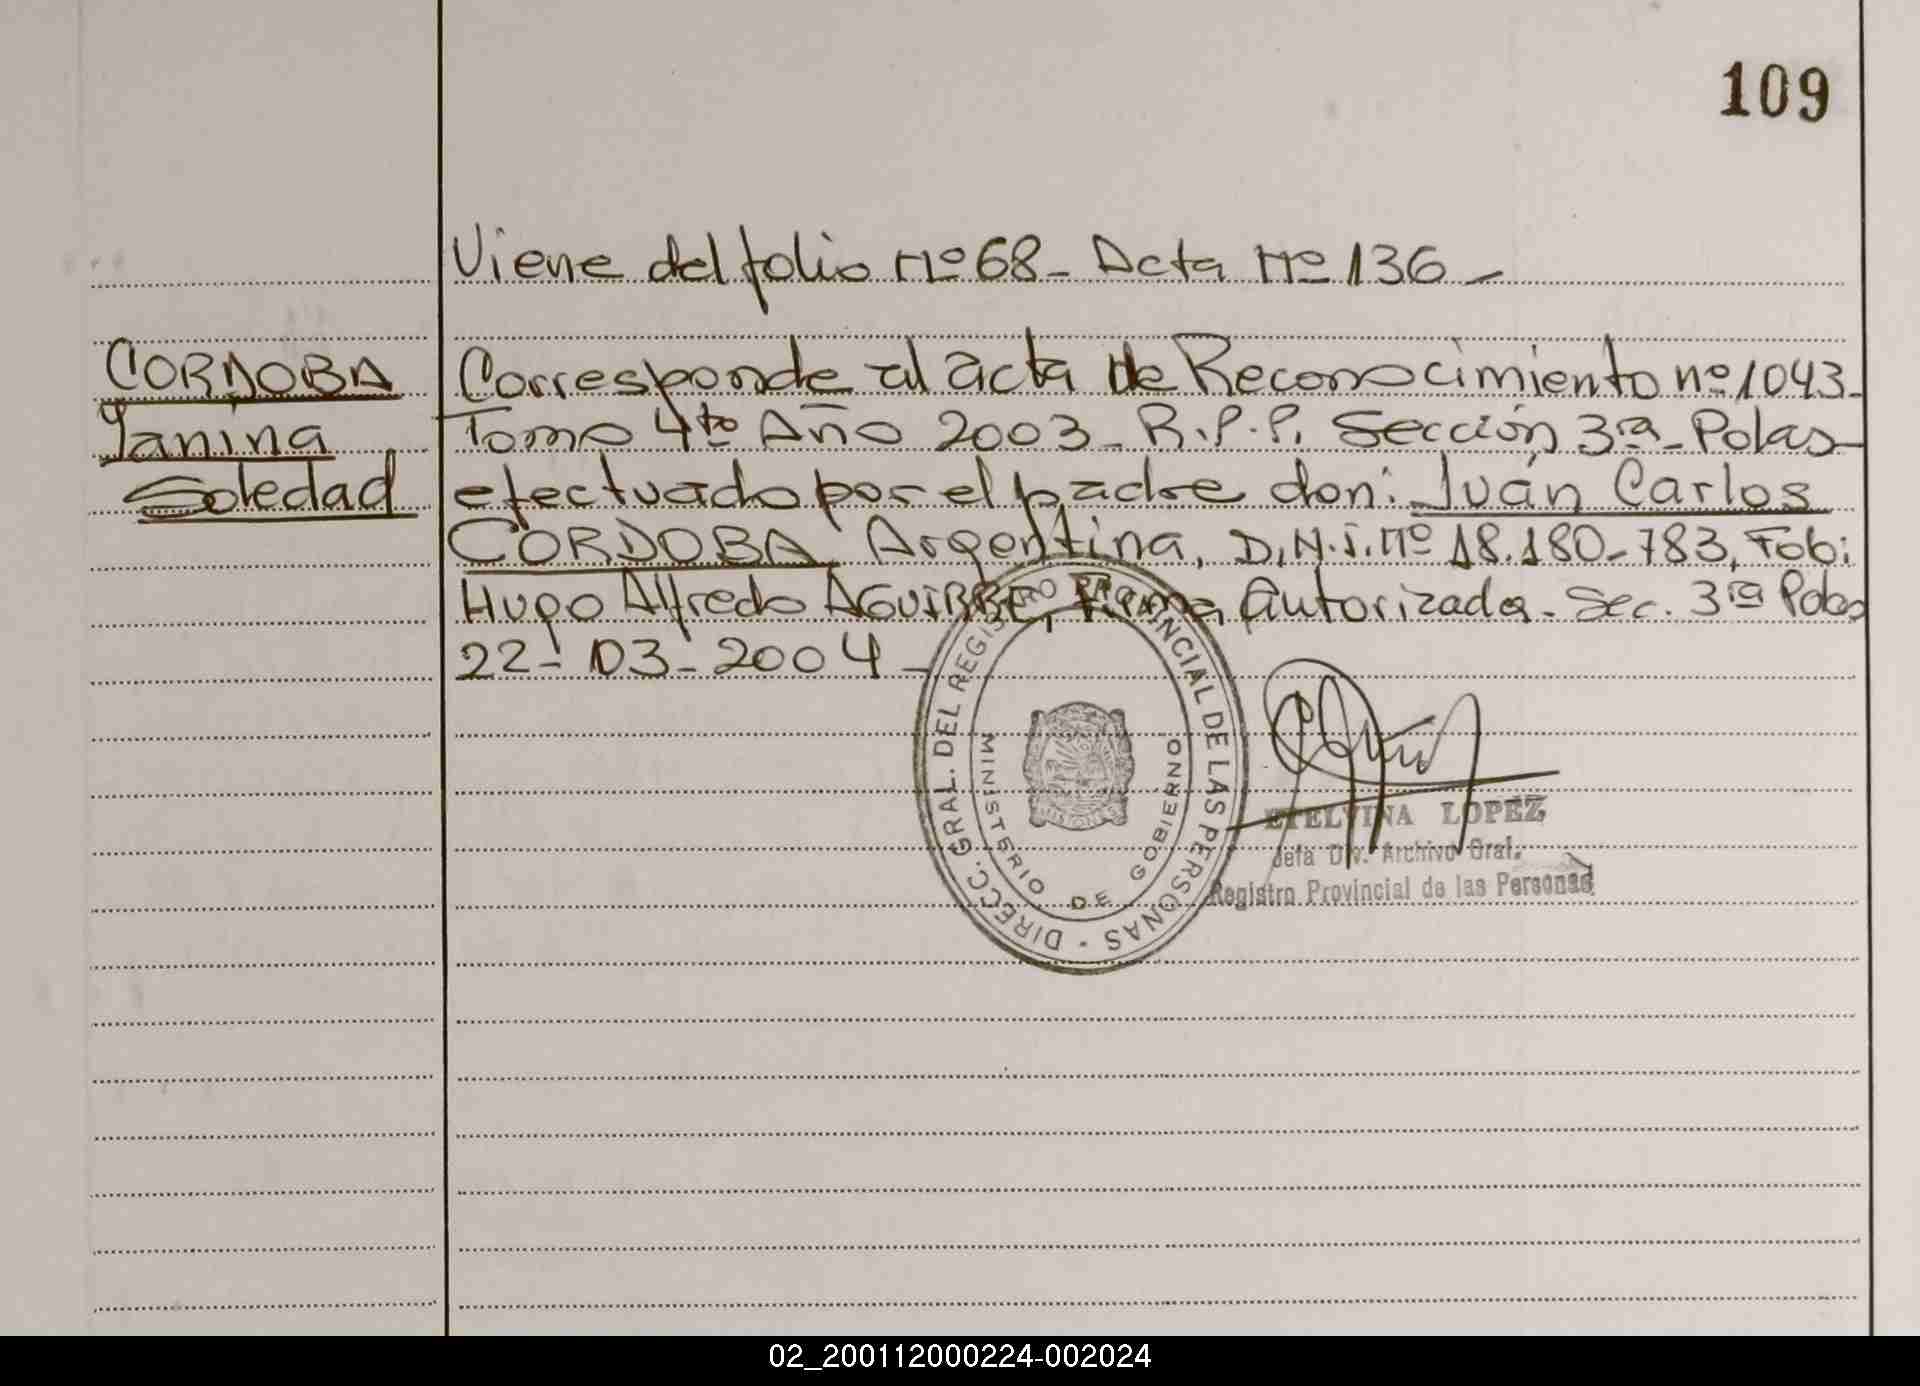 109
Viene del folio nº 68 - Acta Nº 136 -
CORDOBA
Yanina
Soledad
Corresponde al acta de Reconocimiento nº 1043-
Tomo 4to Año 2003- R.P.P. Sección 3ra- Pdas-
efectuado por el padre don: Juán Carlos
CORDOBA Argentina, D.N.I. nº 18.180-783, Fdo:
Hugo Alfredo AGUIRRE, Firma Autorizada - Sec. 3ra Pdas
22-03-2004-
DIRECC. GRAL. DEL REGISTRO PROVINCIAL DE LAS PERSONAS -
MINISTERIO DE GOBIERNO
MISIONES
ETELVINA LOPEZ
Jefa Div. Archivo Gral.
Registro Provincial de las Personas
02_200112000224-002024